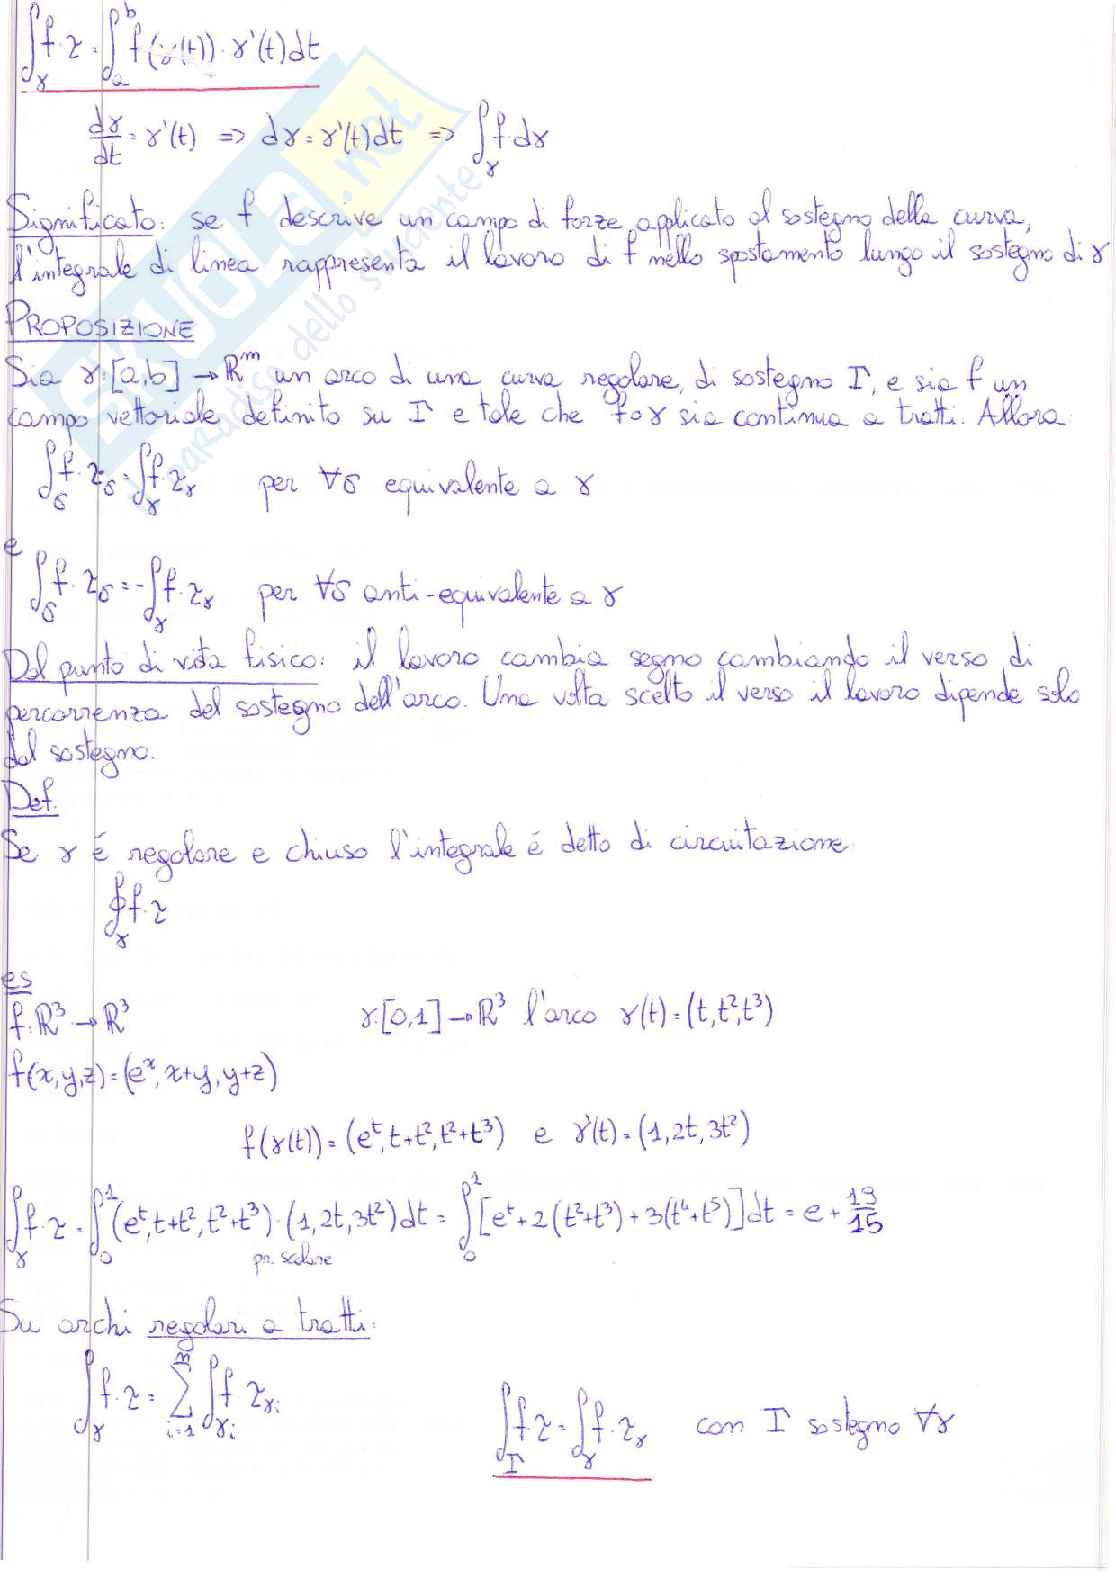 ∫_γ f·τ = ∫_a^b f(γ(t))·γ'(t)dt
dγ/dt = γ'(t) => dγ = γ'(t)dt => ∫_γ f·dγ
Significato: se f descrive un campo di forze applicato al sostegno della curva,
l'integrale di linea rappresenta il lavoro di f nello spostamento lungo il sostegno di γ
PROPOSIZIONE
Sia γ:[a,b] → ℝ^m un arco di una curva regolare, di sostegno Γ, e sia f un
campo vettoriale definito su Γ e tale che f∘γ sia continua a tratti. Allora:
∫_δ f·τ_δ = ∫_γ f·τ_γ per ∀δ equivalente a γ
e
∫_δ f·τ_δ = -∫_γ f·τ_γ per ∀δ anti-equivalente a γ
Dal punto di vista fisico: il lavoro cambia segno cambiando il verso di
percorrenza del sostegno dell'arco. Una volta scelto il verso il lavoro dipende solo
dal sostegno.
Def.
Se γ é regolare e chiuso l'integrale é detto di circuitazione
∮_γ f·τ
es
f:ℝ³ → ℝ³ γ:[0,1] → ℝ³ l'arco γ(t) = (t,t²,t³)
f(x,y,z) = (e^x, x+y, y+z)
f(γ(t)) = (e^t, t+t², t²+t³) e γ'(t) = (1,2t,3t²)
∫_γ f·τ = ∫_0^1 (e^t, t+t², t²+t³)·(1,2t,3t²)dt = ∫_0^1 [e^t+2(t²+t³)+3(t⁴+t⁵)]dt = e + 19/15
pr. scalare
Su archi regolari a tratti:
∫_γ f·τ = Σ_{i=1}^m ∫_γi f·τ_γi
∫_Γ f·τ = ∫_γ f·τ_γ con Γ sostegno ∀γ
SKUOLA.net
il paradiso dello studente